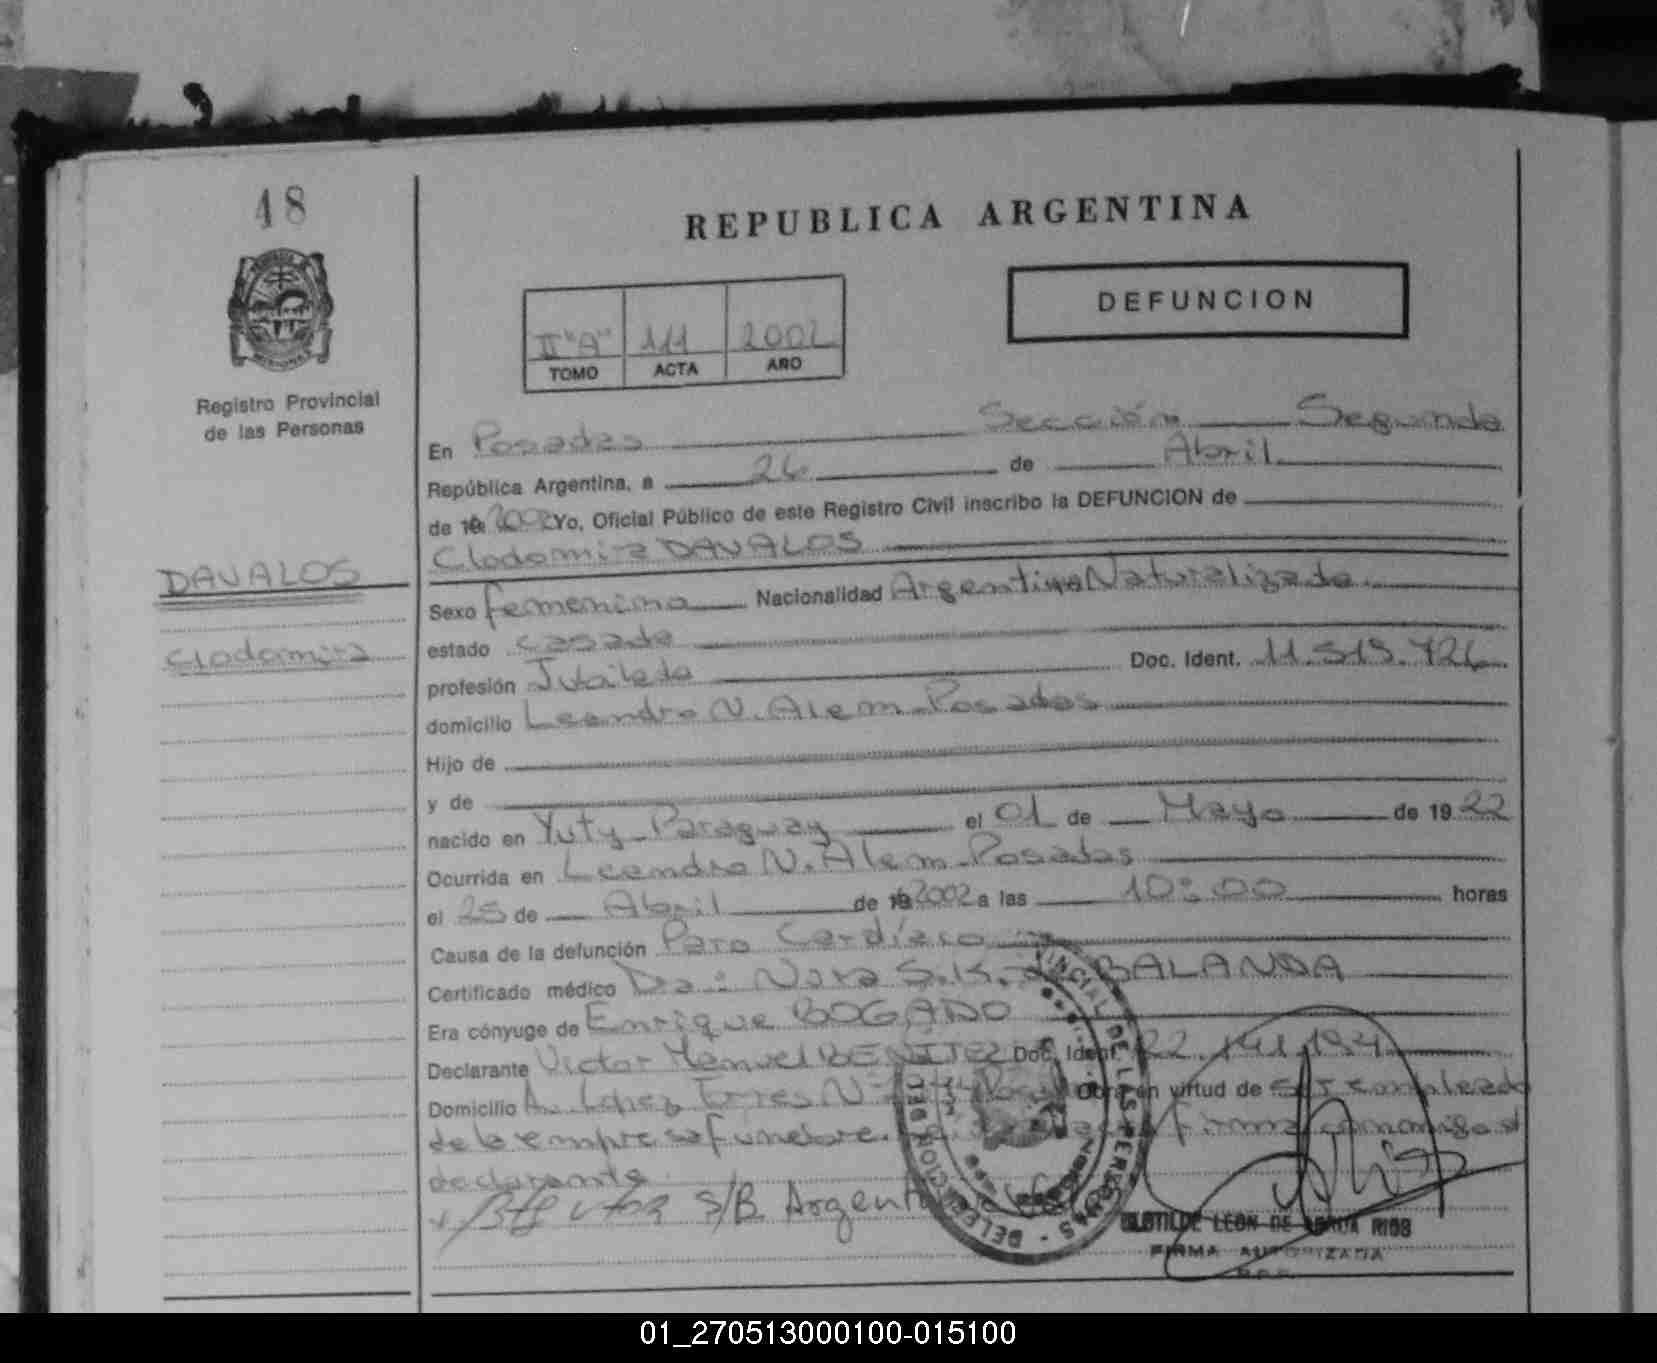 48
REPUBLICA ARGENTINA
DEFUNCION
II "A" 111 2002
TOMO ACTA AÑO
Registro Provincial
de las Personas
En Posadas Sección Segunda
República Argentina, a 26 de Abril
de 19 2002 Yo, Oficial Público de este Registro Civil inscribo la DEFUNCION de
Clodomira DAVALOS
DAVALOS
Clodomira
Sexo femenino Nacionalidad Argentina Naturalizada
estado casada
profesión Jubilada Doc. Ident. 11.515.726
domicilio Leandro N. Alem Posadas
Hijo de
y de
nacido en Yuty Paraguay el 01 de Mayo de 1922
Ocurrida en Leandro N. Alem Posadas
el 25 de Abril de 19 2002 a las 10:00 horas
Causa de la defunción Paro Cardíaco
Certificado médico Dra: Nora S. K. de BALANDA
Era cónyuge de Enrique BOGADO
Declarante Victor Manuel BENITEZ Doc. Ident. 22.141.194
Domicilio A. López Torres Nº Obra en virtud de ser empleado
de la empresa funebre. firma conmigo el
declarante
s/B Argentina
CLOTILDE LEON DE RIOS
FIRMA AUTORIZADA
01_270513000100-015100